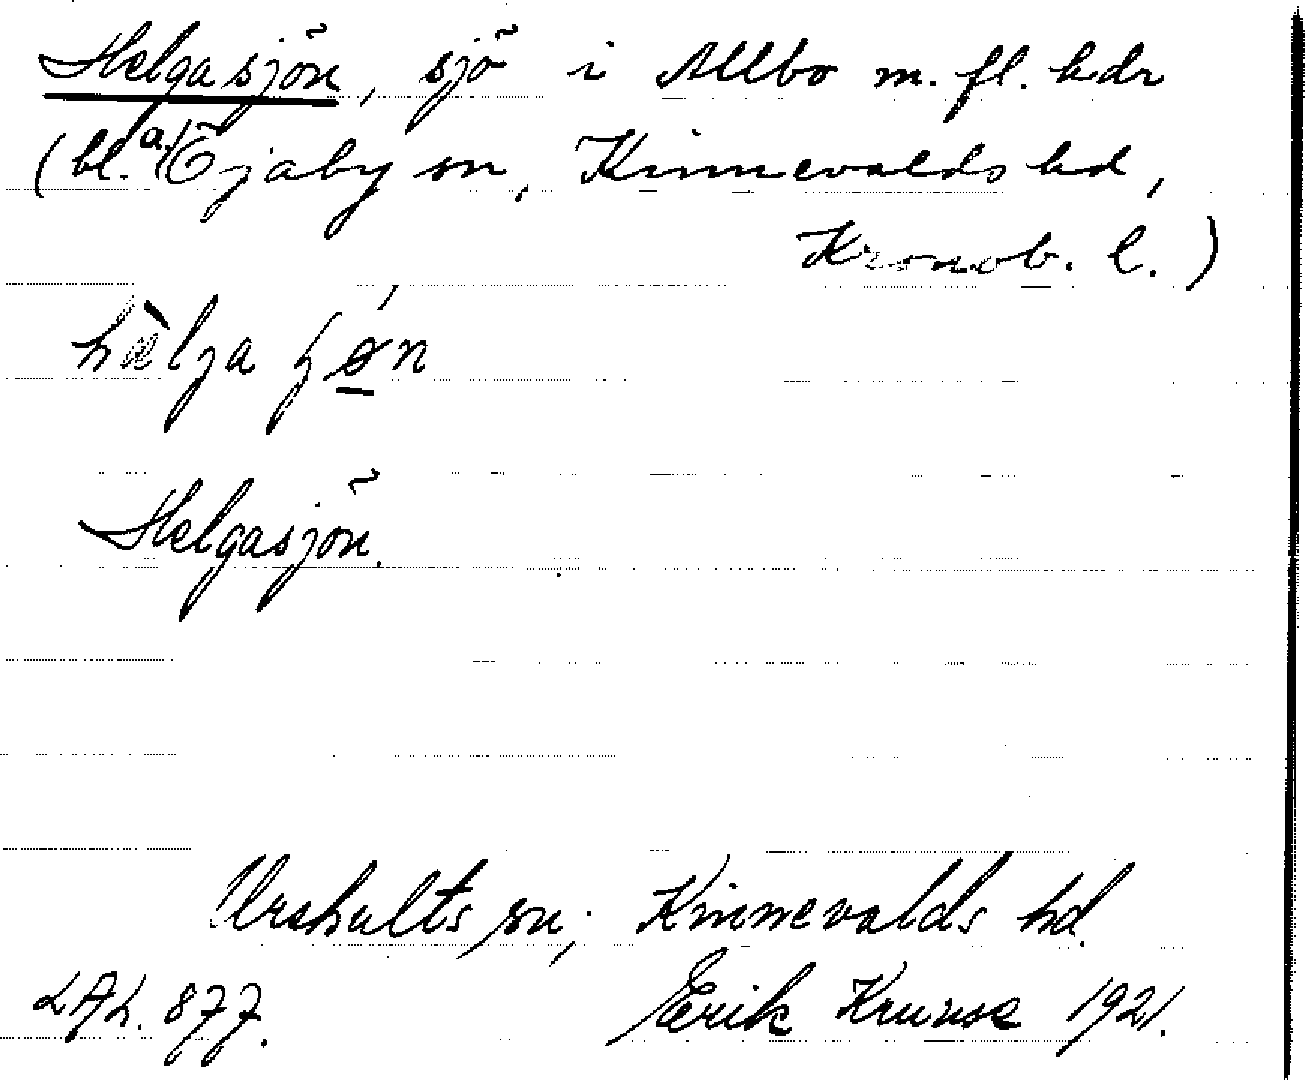 Helgasjön, sjö i Allbo m. fl. hdr
(bl. a. Öjaby sn, Kinnevalds hd,
Kronob. l.)
Helgasjön.
Urshults sn; Kinnevalds hd.
LAL. 877. Erik Krunse 1921.